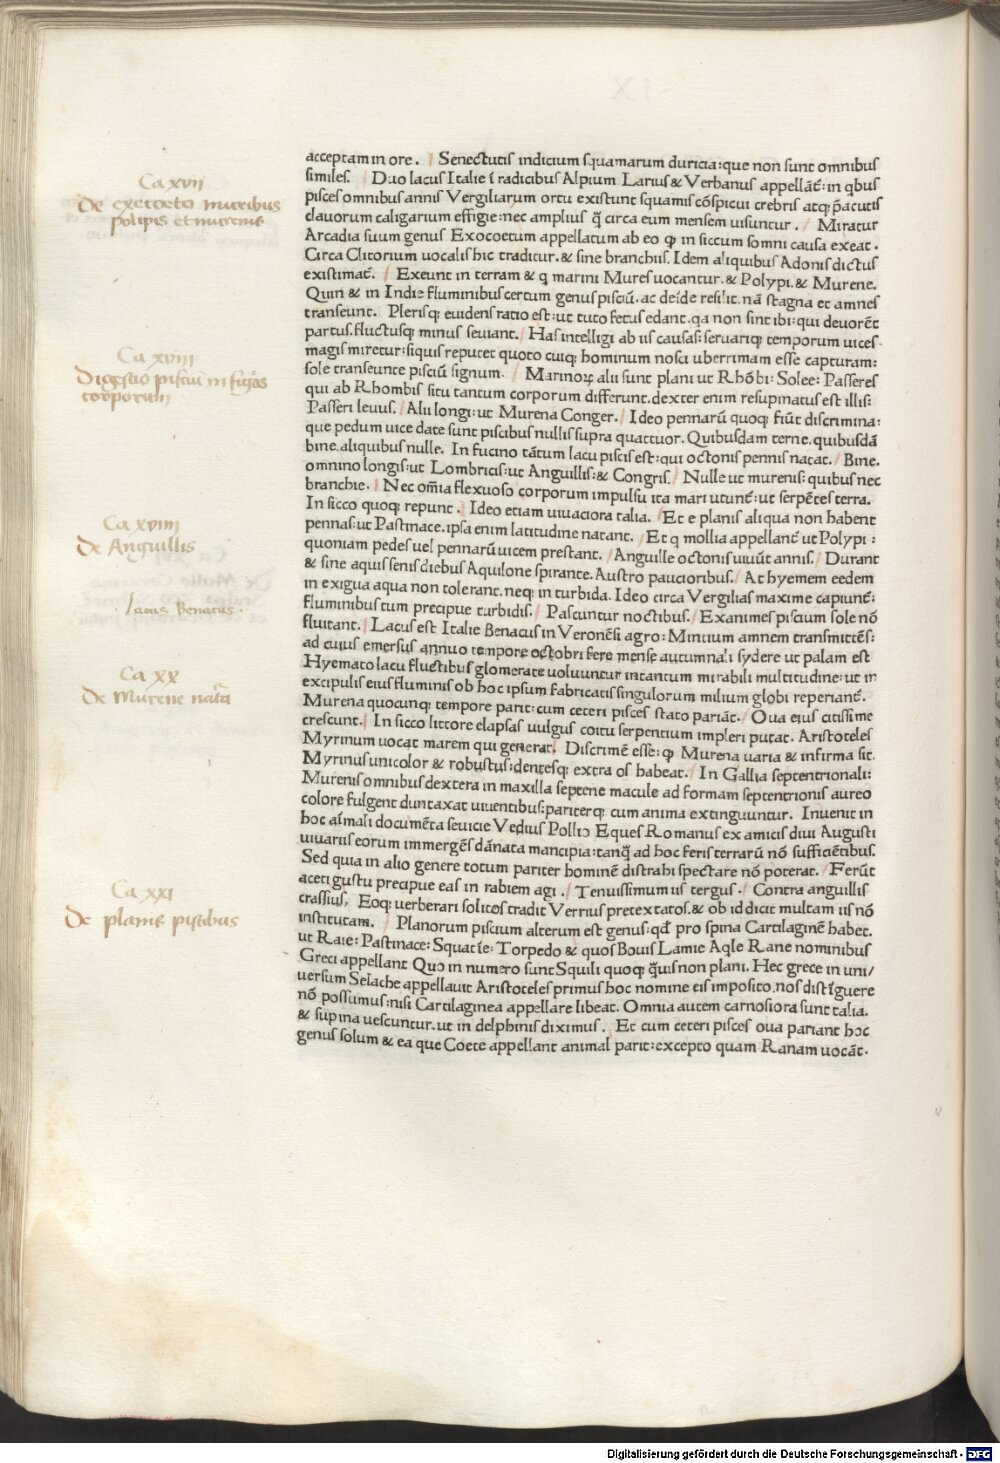 acceptam in ore. Senectutis indicium squamarum duricia: que non sunt omnibus
similes. Duo lacus Italie ĩ radicibus Alpium Larius & Verbanus appellãt: in qbus
pisces omnibus annis Vergiliarum ortu existunt squamis cõspicui crebris atq; p̃acutis
clauorum caligarium effigie: nec amplius q̃ circa eum mensem uisuntur. Miratur
Arcadia suum genus Exocoetum appellatum ab eo ꝙ in siccum somni causa exeat.
Circa Clitorium uocalis hic traditur. & sine branchiis. Idem aliquibus Adonis dictus
existimat̃. Exeunt in terram & q marini Mures uocantur. & Polypi. & Murene.
Quin & in Indie fluminibus certum genus pisciũ. ac deĩde resilit. nã stagna et amnes
transeunt. Plerisq; euidens ratio est: ut tuto fetus edant. qa non sint ibi: qui deuorẽt
partus. fluctusq; minus seuiant. Has intelligi ab iis causas: seruariq; temporum uices
magis miretur: siquis reputet quoto cuiq; hominum nosci uberrimam esse capturam:
sole transeunte pisciũ signum. Marinoꝝ alii sunt plani ut Rhõbi: Solee: Passeres
qui ab Rhombis situ tantum corporum differunt. dexter enim resupinatus est illis:
Passeri leuus. Alii longi: ut Murena Conger. Ideo pennarũ quoq; fiũt discrimina:
que pedum uice date sunt piscibus nullis supra quattuor. Quibusdam terne. quibusdã
bine. aliquibus nulle. In fucino tãtum lacu piscis est: qui octonis pennis natat. Bine.
omnino longis: ut Lombricis: ut Anguillis: & Congris. Nulle ut murenis: quibus nec
branchie. Nec om̃ia flexuoso corporum impulsu ita mari utunt̃: ut serpẽtes terra.
In sicco quoq; repunt. Ideo etiam uiuaciora talia. Et e planis aliqua non habent
pennas: ut Pastinace. ipsa enim latitudine natant. Et q mollia appellant̃ ut Polypi:
quoniam pedes uel pennarũ uicem prestant. Anguille octonis uiuũt annis. Durant
& sine aquis senis diebus Aquilone spirante. Austro paucioribus. At hyemem eedem
in exigua aqua non tolerant. neq; in turbida. Ideo circa Vergilias maxime capiunt̃:
fluminibus tum precipue turbidis. Pascuntur noctibus. Exanimes piscium sole nõ
fluitant. Lacus est Italie Benacus in Veronẽsi agro: Mintium amnem transmittẽs:
ad cuius emersus annuo tempore octobri fere mense autumnali sydere ut palam est
Hyemato lacu fluctibus glomerate uoluuntur intantum mirabili multitudine: ut in
excipulis eius fluminis ob hoc ipsum fabricatis singulorum milium globi reperiant̃.
Murena quocunq; tempore parit: cum ceteri pisces stato pariãt. Oua eius citissime
crescunt. In sicco littore elapsas uulgus coitu serpentium impleri putat. Aristoteles
Myrinum uocat marem qui generat. Discrimẽ esse: ꝙ Murena uaria & infirma sit.
Myrinus unicolor & robustus: dentesq; extra os habeat. In Gallia septentrionali:
Murenis omnibus dextera in maxilla septene macule ad formam septentrionis aureo
colore fulgent duntaxat uiuentibus: pariterq; cum anima extinguuntur. Inuenit in
hoc aĩmali documẽta seuicie Vedius Pollio Eques Romanus ex amicis diui Augusti
uiuariis eorum immergẽs dãnata mancipia: tanq̃ ad hoc feris terrarũ nõ sufficiẽtibus.
Sed quia in alio genere totum pariter hominẽ distrahi spectare nõ poterat. Ferũt
aceti gustu precipue eas in rabiem agi. Tenuissimum iis tergus. Contra anguillis
crassius. Eoq; uerberari solitos tradit Verrius pretextatos. & ob id dicit multam iis nõ
institutam. Planorum piscium alterum est genus: qd̃ pro spina Cartilaginẽ habet.
ut Raie: Pastinace: Squatĩe: Torpedo & quos Bouis Lamie Aqle Rane nominibus
Greci appellant Quo in numero sunt Squili quoq; q̃uis non plani. Hec grece in uni/
uersum Selache appellauit Aristoteles primus hoc nomine eis imposito. nos distĩguere
nõ possumus: nisi Cartilaginea appellare libeat. Omnia autem carnosiora sunt talia.
& supina uescuntur. ut in delphinis diximus. Et cum ceteri pisces oua pariant hoc
genus solum & ea que Coete appellant animal parit: excepto quam Ranam uocãt.
Ca xvii
De exoceto muribus
polipis et murenis
Ca xviii
Digestio pisciũ in figũas
corporum
Ca xviiii
De Anguillis
Lacus Benacus.
Ca xx
De Murene nat̃a
Ca xxi
De planis piscibus
Digitalisierung gefördert durch die Deutsche Forschungsgemeinschaft - DFG